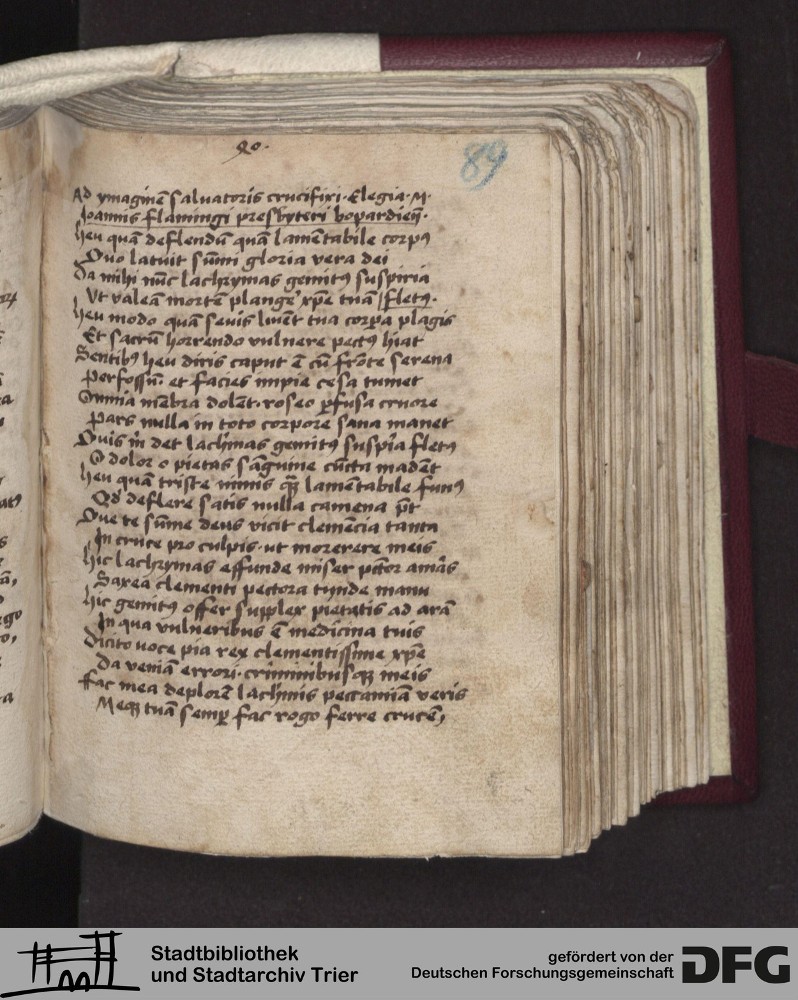 90.
89
Ad ymaginē saluatoris crucifixi. Elegia. M.
Joannis flamingi presbyteri bopardieñ.
Heu quā deflendū quā lamētabile corpꝰ
Quo latuit sūmi gloria vera dei
Da mihi nūc lachrymas gemitꝰ suspiria
Vt valeā mortē plange' xp̄e tuā / fletꝰ.
Heu modo quā seuis liuēt tua corpa plagis
Et sacrū horrendo vulnere pectꝰ hiat
Sentibꝰ heu diris caput ē cū frōte serena
Perfossū. et facies impie cesa tumet
Omnia mēbra dolēt. roseo ꝑfusa cruore
Pars nulla in toto corpore sana manet
Quis m̄ det lachmas gemitꝰ suspīa fletꝰ
O dolor o pietas sāguine cūcta madēt
Heu quā triste nimis qꝫ lamētabile funꝰ
Qd̄ deflere satis nulla camena p̄t
Que te sūme deus vicit clemēcia tanta
In cruce pro culpis. ut morerere meis
Hic lachrymas effunde miser pctor amās
Saxea clementi pectora tunde manu
Hic gemitꝰ offer supplex pietatis ad arā
In qua vulneribus ē medicina tuis
Dicito uoce pia rex clementissime xp̄e
Da veniā errori. criminibusqꝫ meis
Fac mea deplorē lachmis peccamīa veris
Meqꝫ tuā semꝑ fac rogo ferre crucē,
Stadtbibliothek
und Stadtarchiv Trier
gefördert von der
Deutschen Forschungsgemeinschaft
DFG